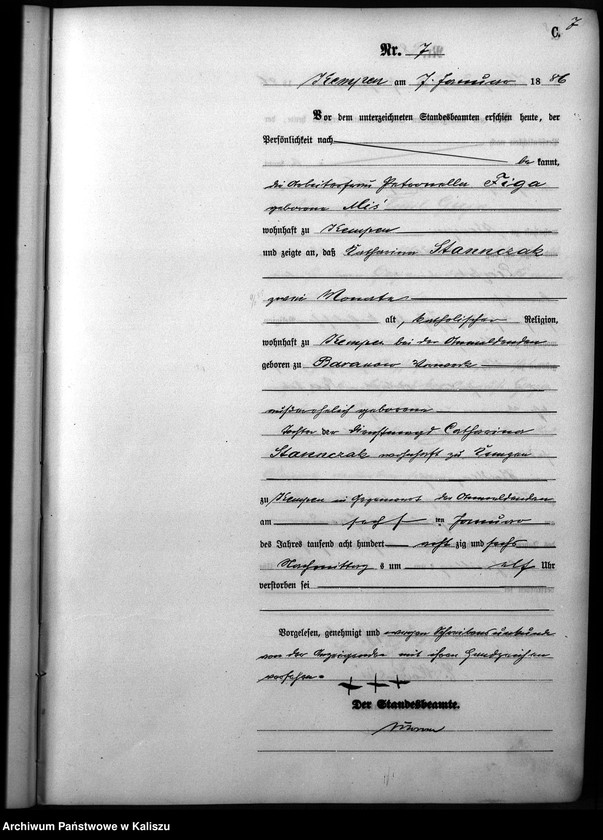 7
C.
Nr. 7
Kempen am 7. Januar 1886
Vor dem unterzeichneten Standesbeamten erschien heute, der
Persönlichkeit nach
be kannt,
die Arbeiterfrau Petronella Figa
geborene Miś
wohnhaft zu Kempen
und zeigte an, daß Katharina Stannczak
zwei Monate
alt, katholischer Religion,
wohnhaft zu Kempen bei der Anmeldenden
geboren zu Baranow
außerehelich geborene
Tochter der Dienstmagd Catharina
Stannczak wohnhaft zu Kempen
zu Kempen in Gegenwart der Anmeldenden
am sechs ten Januar
des Jahres tausend acht hundert acht zig und sechs
Nachmittag s um elf Uhr
verstorben sei
Vorgelesen, genehmigt und wegen Schreibensunkunde
von der Anzeigenden mit ihren Handzeichen
versehen.
+++
Der Standesbeamte.
Archiwum Państwowe w Kaliszu